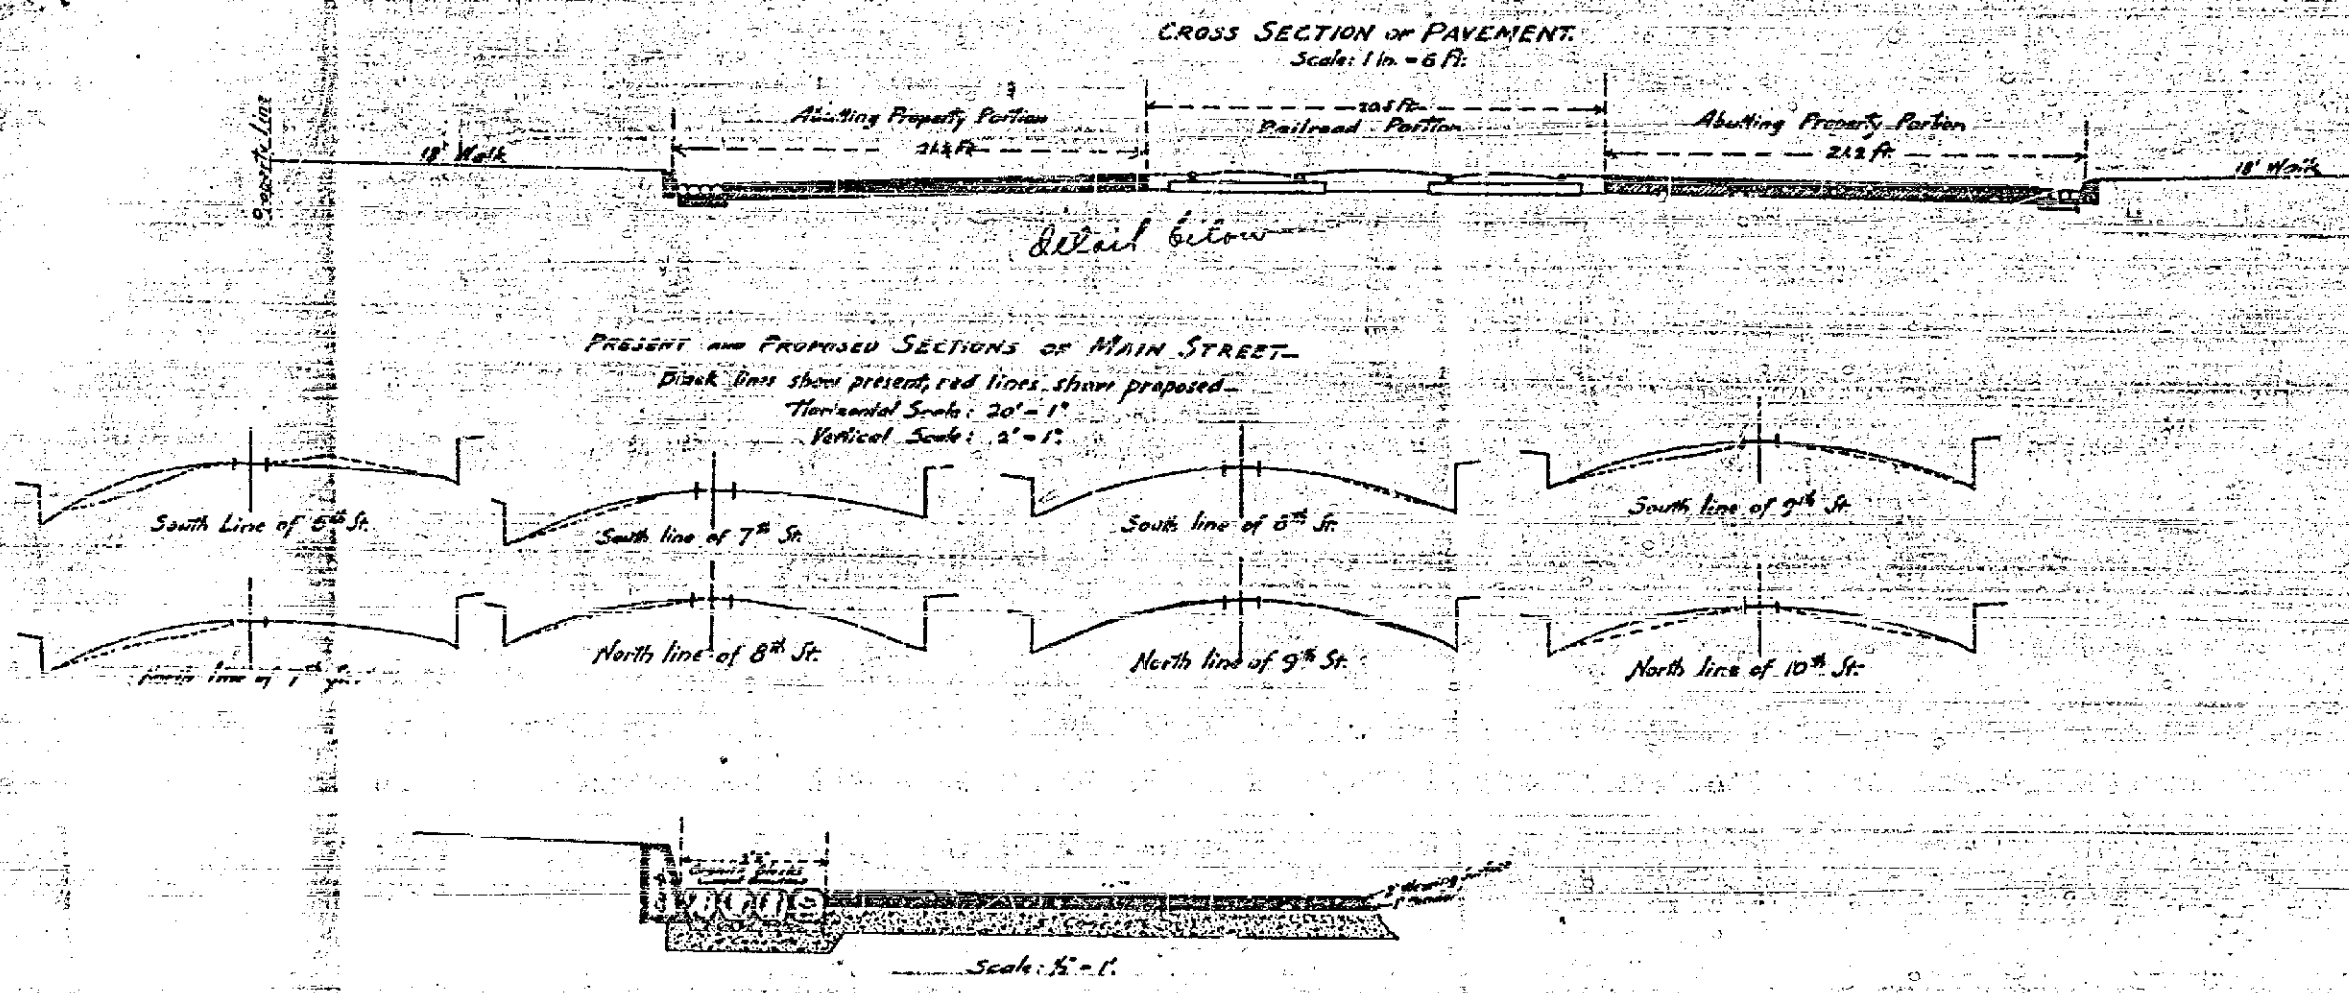 CROSS SECTION OF PAVEMENT.
Scale: 1 in. = 6 ft.
Property Line
18' Walk
Abutting Property Portion
21.2 ft.
20.5 ft.
Railroad Portion
Abutting Property Portion
21.2 ft.
18' Walk
detail below
PRESENT AND PROPOSED SECTIONS OF MAIN STREET
Black lines show present, red lines show proposed
Horizontal Scale: 20' = 1"
Vertical Scale: 2' = 1"
South Line of 6th St.
South line of 7th St.
South line of 8th St.
South line of 9th St.
North line of 7th St.
North line of 8th St.
North line of 9th St.
North line of 10th St.
Granite blocks
2" Wearing surface
1" Binder
Concrete
Scale: ½" = 1'